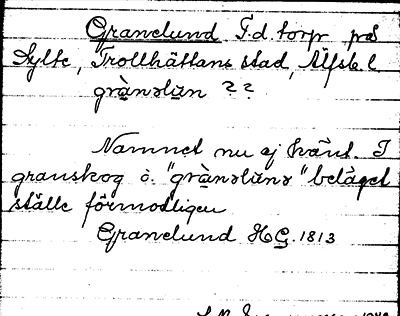 Granelund F.d. torp på
Sylte, Trollhättans stad, Älfsb. l.
grànəlùn ??
Namnet nu ej känt. I
granskog o. "grànəlùnə" beläget
ställe förmodligen
Granelund HC. 1813